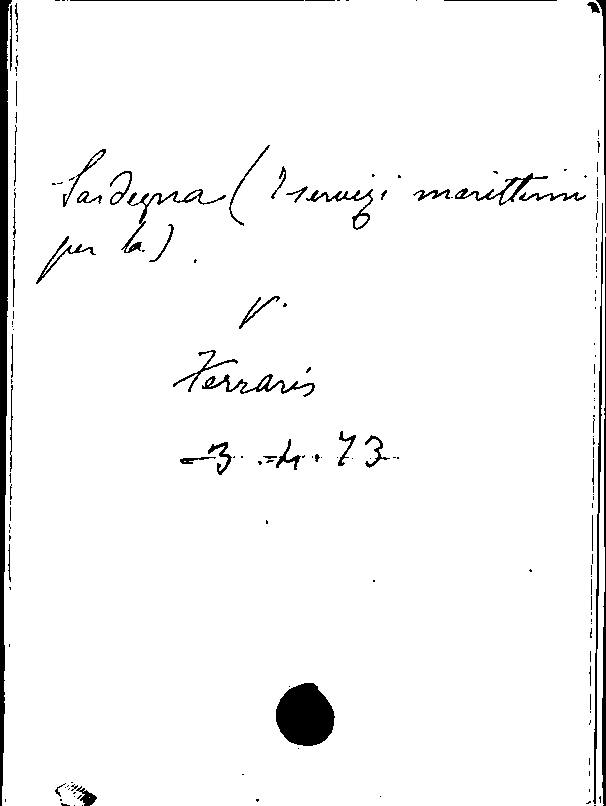 Sardegna (I servizi marittimi
per la).
v.
Ferraris
3.4.73